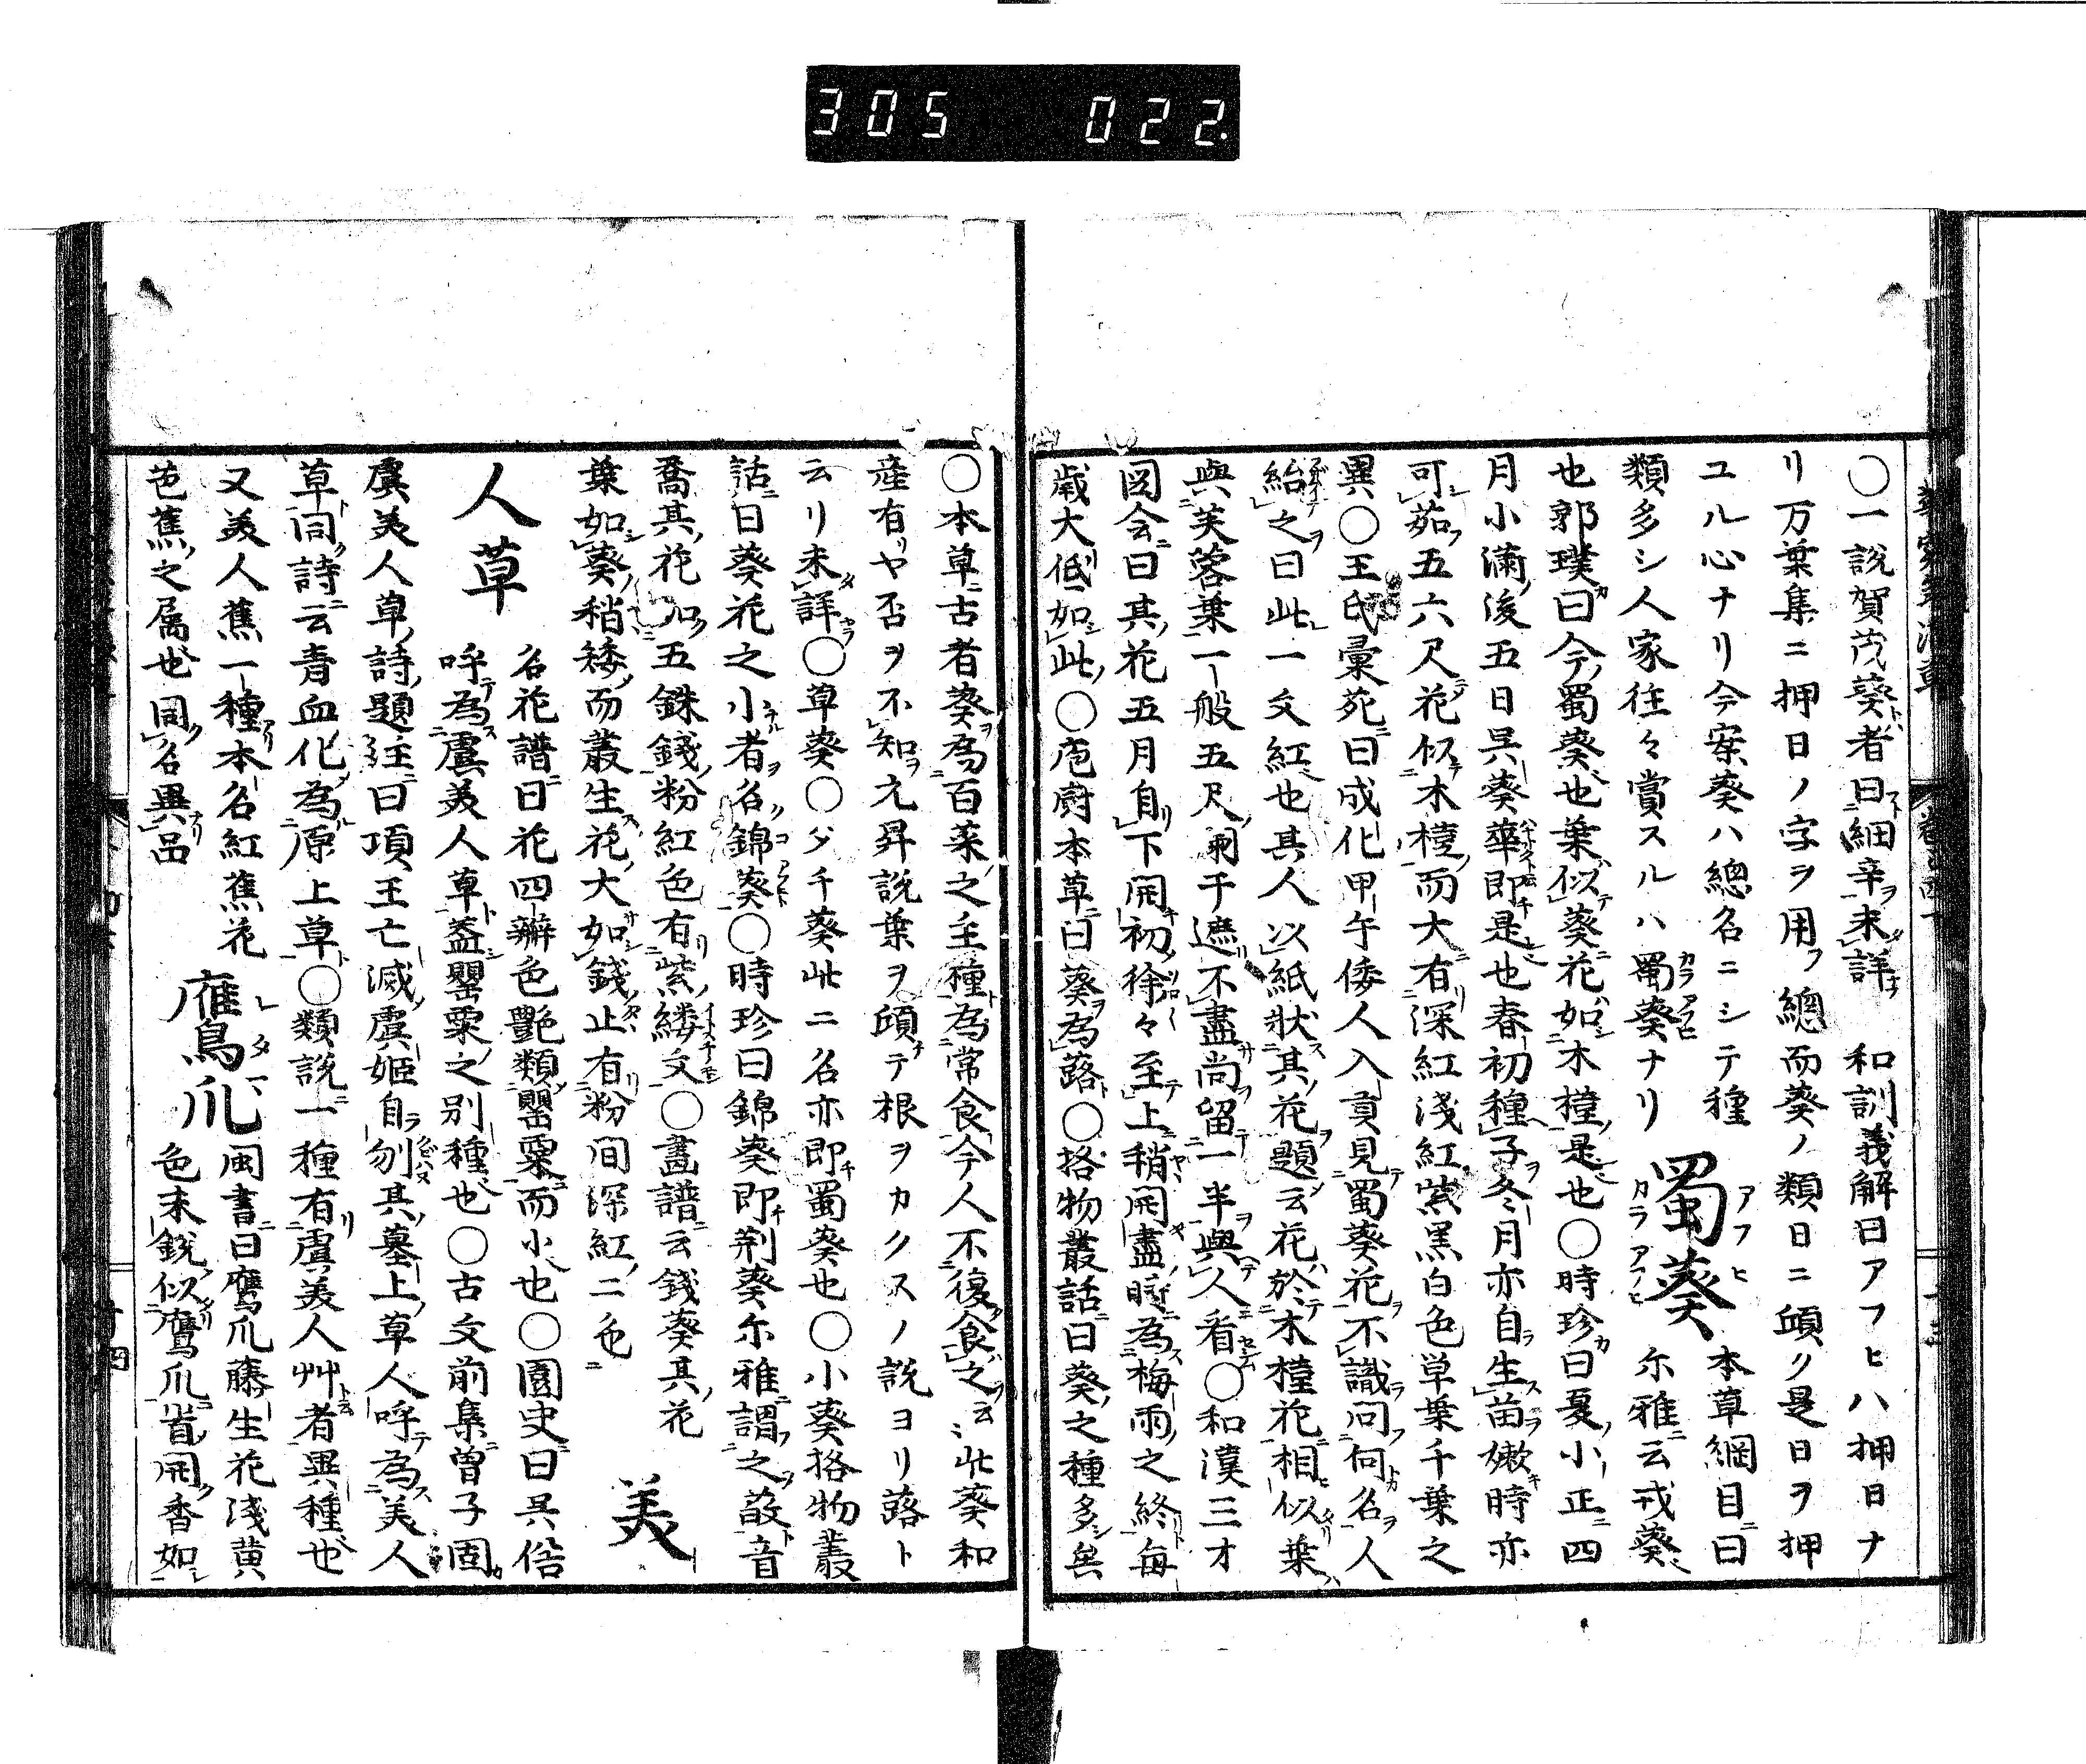 305 022.
〇一説賀茂葵者曰細辛未詳 和訓義解曰アフヒハ押日ナ
リ万葉集ニ押日ノ字ヲ用フ總而葵ノ類日ニ傾ク是日ヲ押
ユル心ナリ今案葵ハ總名ニシテ種
類多シ人家往々賞スルハ蜀葵ナリ
蜀葵
本草綱目曰
尓雅云戎葵
也郭璞曰今蜀葵也葉似葵花如木槿是也〇時珍曰夏小正四
月小満後五日呉葵華即是也春初種子冬月亦自生苗嫩時亦
可茹五六尺花似木槿而大有深紅浅紅紫黒白色単葉千葉之
異〇王氏彙苑曰成化甲午倭人入貢見蜀葵花不識問何名人
紿之曰此一丈紅也其人以紙状其花題云花於木槿花相似葉
與芙蓉葉一般五尺闌干遮不盡尚留一半與人看〇和漢三才
図会曰其花五月自下開初徐々至上稍開盡時為梅雨之終毎
歳大低如此〇庖廚本草曰葵為蕗〇格物叢話曰葵之種多矣
〇本草古者葵為百菜之主種為常食今人不復食之云此葵和
産有ヤ否ヲ不知元昇説葉ヲ傾テ根ヲカクスノ説ヨリ蕗ト
云リ未詳〇草葵〇タチ葵此ニ名亦即蜀葵也〇小葵格物叢
話曰葵花之小者名錦葵〇時珍曰錦葵即荊葵尓雅謂之荍音
喬其花如五銖錢粉紅色有紫縷文〇畫譜云錢葵其花
葉如葵稍矮而叢生花大如錢止有粉間深紅二色
美
人草
名花譜曰花四瓣色艶類罌粟而小也〇園史曰呉俗
呼為虞美人草蓋罌粟之別種也〇古文前集曽子固
虞美人草詩題註曰項王亡滅虞姫自刎其墓上草人呼為美人
草同詩云青血化為原上草〇類説一種有虞美人艸者異種也
又美人蕉一種本名紅蕉花
芭蕉之属也同名異品
鷹爪
閩書曰鷹爪藤生花浅黄
色末鋭似鷹爪首開香如